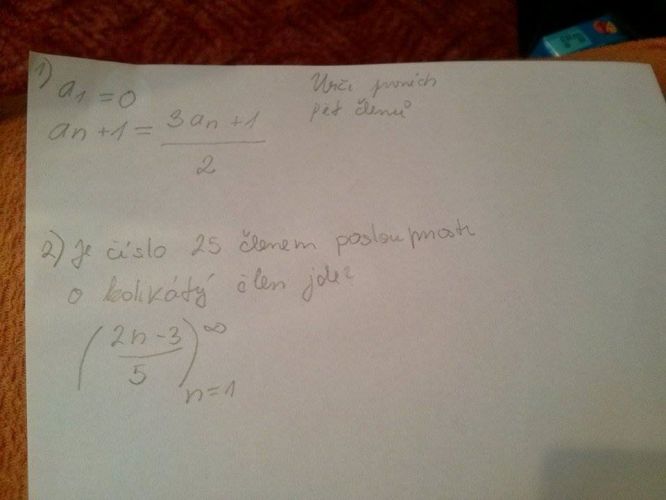 1) a1 = 0
Urči prvních
pět členů
an+1 = 3an+1
2
2) Je číslo 25 členem posloupnosti
o kolikátý člen jde?
(2n-3
5)∞
n=1